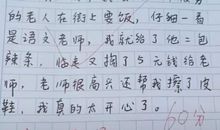 的老人在街上要饭，仔细一看
是语文老师，我就给了他二包
辣条，临走又掏了5元钱给老
师，老师很高兴还帮我擦了皮
鞋，我真的太开心了。
60分